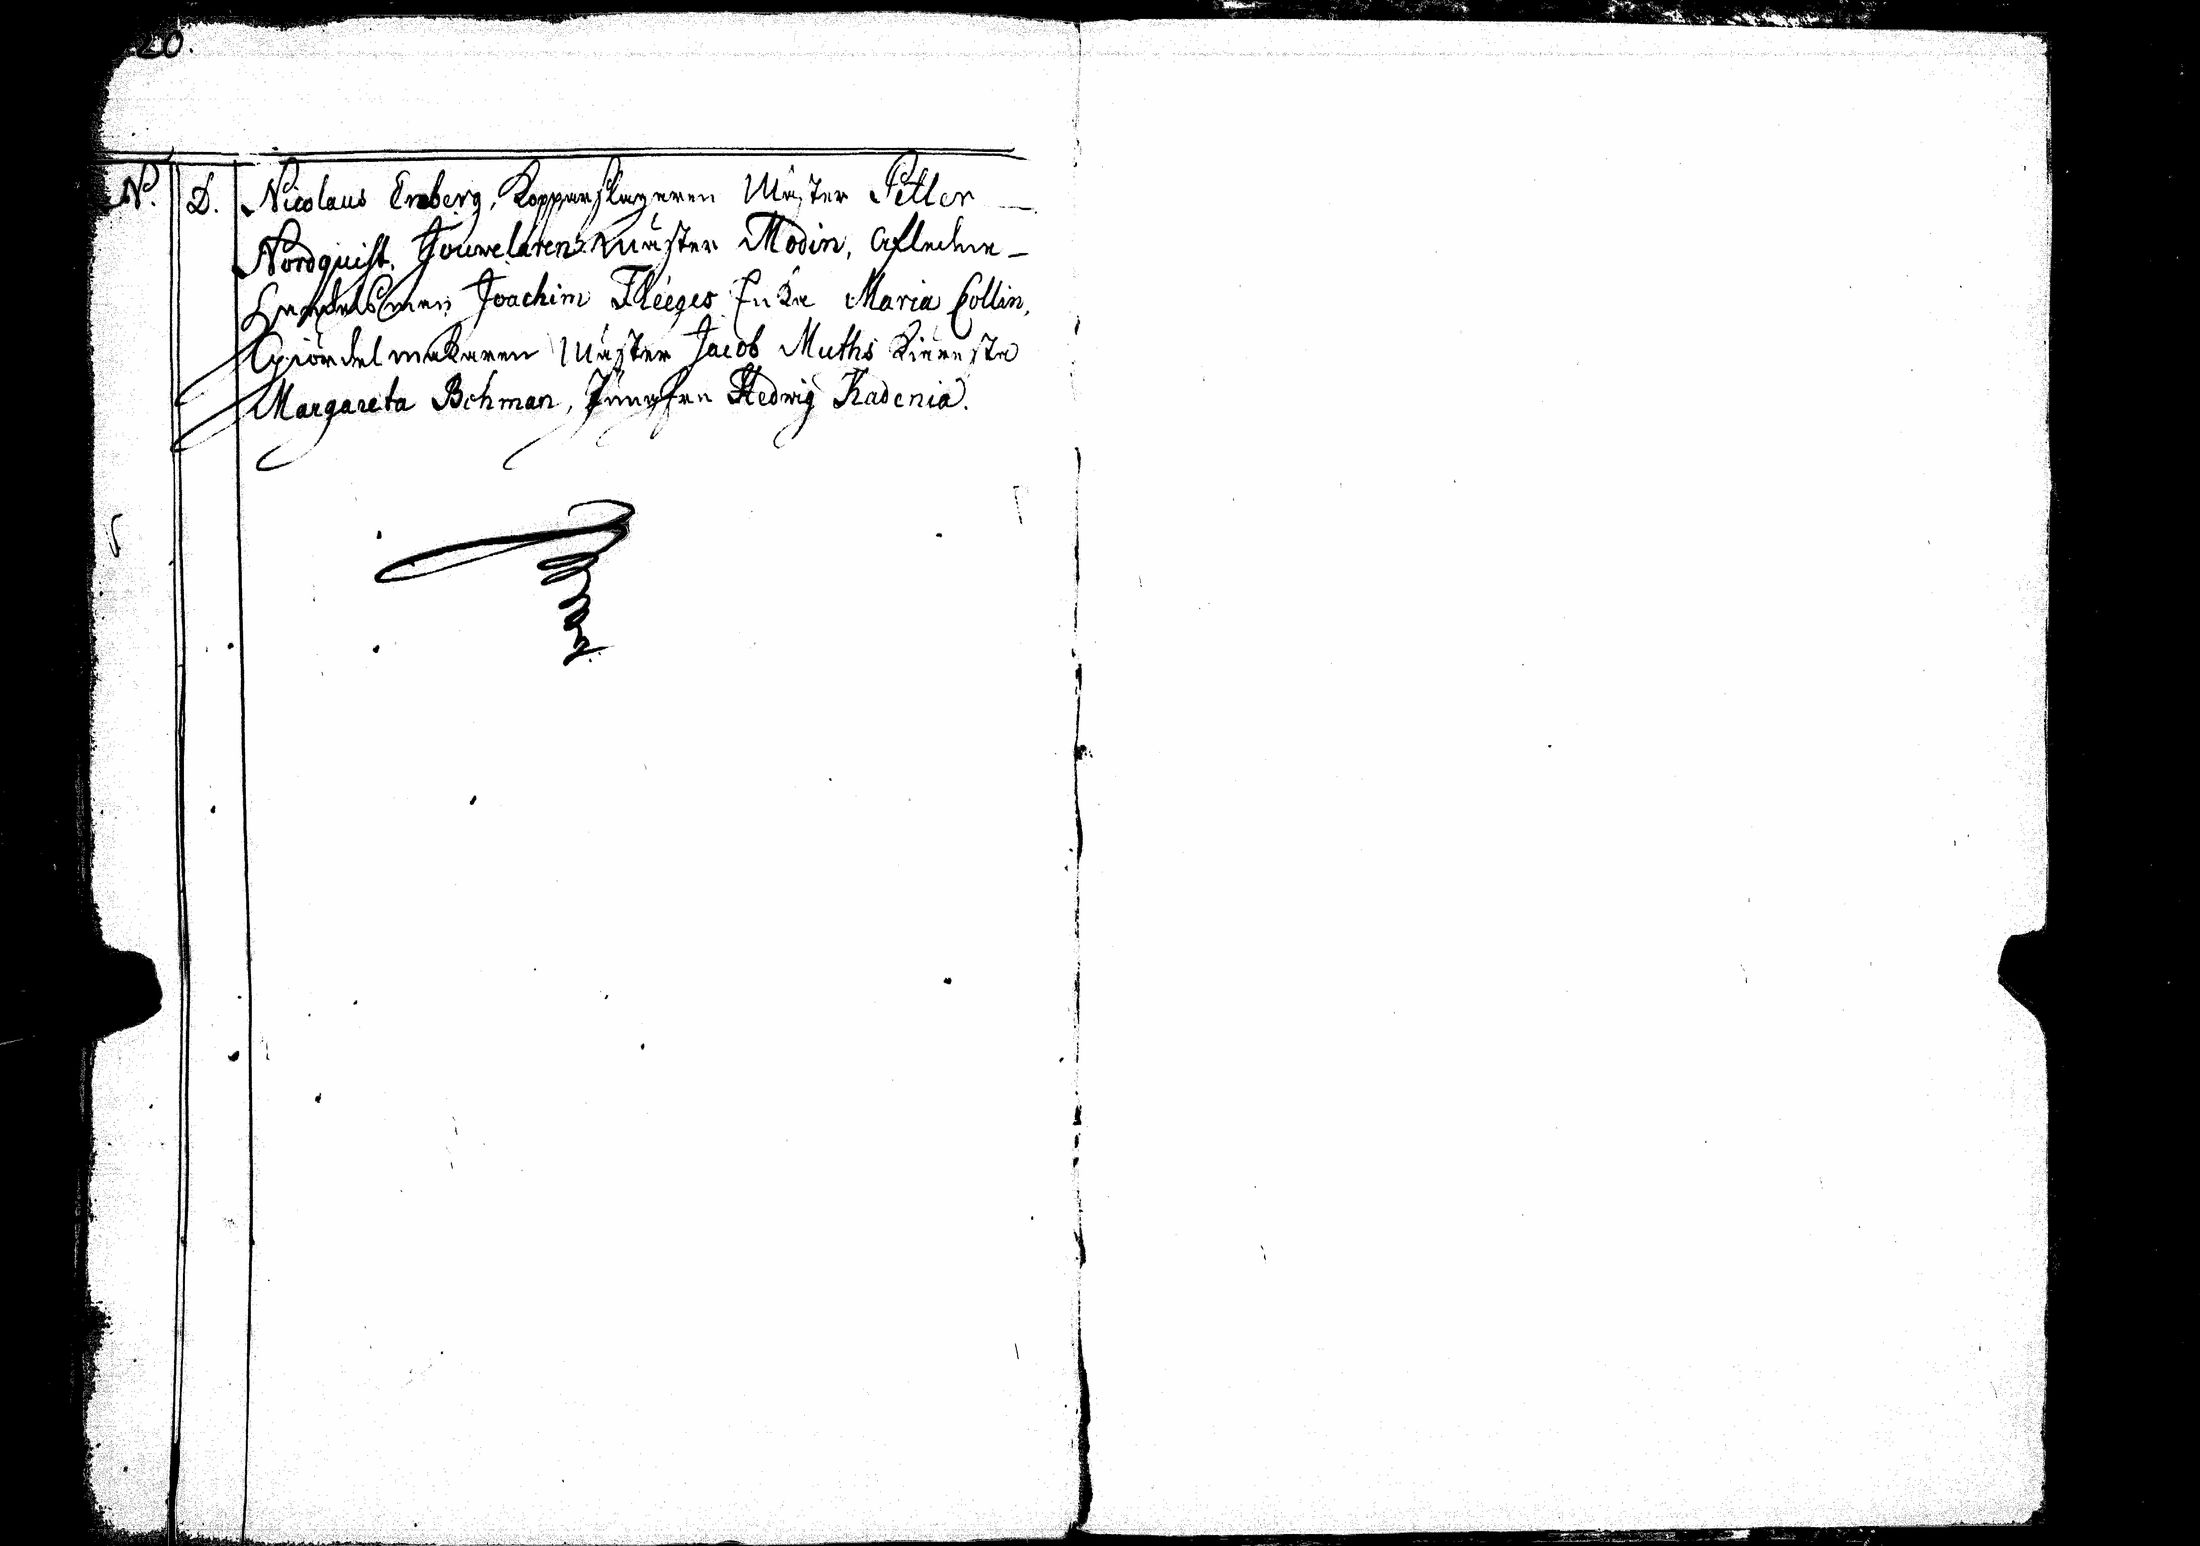 20.
N. D. Nicolaus Enberg, Kopparslagaren Mäster Petter
Nordquist. Jouvelaren Mäster Modin, Afledne
Handelsman Joachim Fléeges Enka Maria Collin,
Giördelmakaren Mäster Jacob Muths Kiäresta
Margareta Behman, Jungfru Hedwig